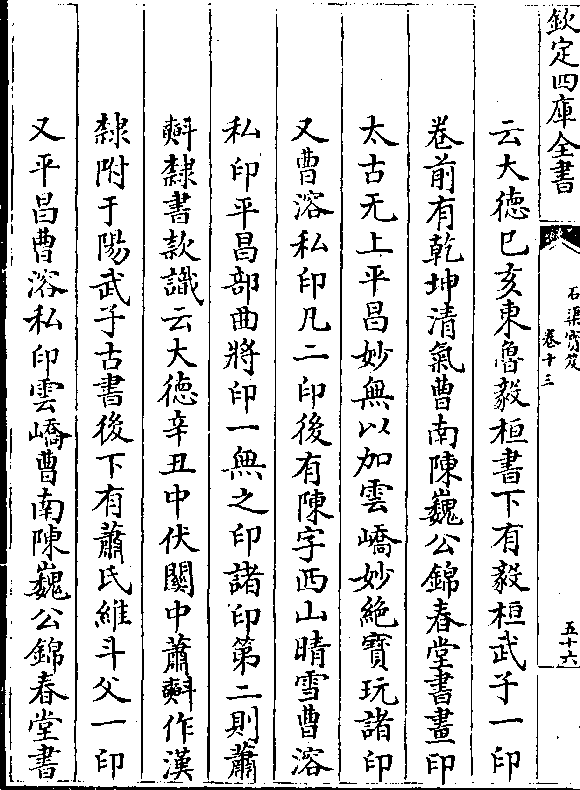 欽定四庫全書
石渠寳笈
卷十三
五十六
云大德已亥東魯毅桓書下有毅桓武子一印
卷前有乾坤清氣曹南陳巍公錦春堂書畫印
太古无上平昌妙無以加雲嶠妙絶寳玩諸印
又曹溶私印凡二印後有陳字西山晴雪曹溶
私印平昌部曲將印一無之印諸印第二則蕭
㪺隸書款識云大德辛丑中伏闗中蕭㪺作漢
隸附于陽武子古書後下有蕭氏維斗父一印
又平昌曹溶私印雲嶠曹南陳巍公錦春堂書